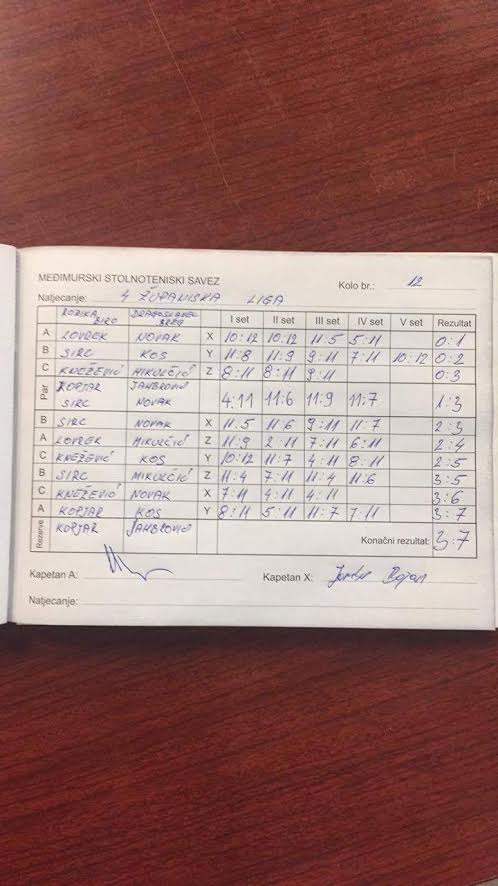 MEĐIMURSKI STOLNOTENISKI SAVEZ
Kolo br.: 12
Natjecanje: 4 ŽUPANIJSKA LIGA
DRAGOSLAVEC I set II set III set IV set V set Rezultat
BREG
A LOVREK NOVAK X 10:12 10:12 11:5 5:11 0:1
B SIRC KOS Y 11:8 11:9 9:11 7:11 10:12 0:2
C KNEŽEVIĆ MIKULČIĆ Z 8:11 8:11 9:11 0:3
Par KOPJAR JAMBROVIĆ
SIRC NOVAK 4:11 11:6 11:9 11:7 1:3
B SIRC NOVAK X 11:5 11:6 9:11 11:7 2:3
A LOVREK MIKULČIĆ Z 11:9 2:11 7:11 6:11 2:4
C KNEŽEVIĆ KOS Y 10:12 11:7 4:11 8:11 2:5
B SIRC MIKULČIĆ Z 11:4 7:11 11:4 11:6 3:5
C KNEŽEVIĆ NOVAK X 7:11 4:11 4:11 3:6
A KOPJAR KOS Y 8:11 5:11 11:7 7:11 3:7
Rezerve KOPJAR JAMBROVIĆ Konačni rezultat: 3:7
Kapetan A: Kapetan X: Bojan
Natjecanje: